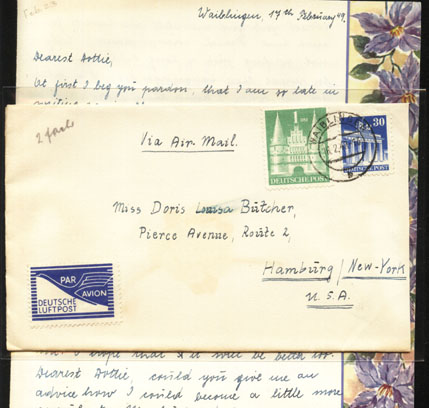 Feb 23
Waiblingen, 17th February 49.
Dearest Dottie,
At first I beg you pardon, that I am so late in
Via Air Mail.
1
DEUTSCHE POST
30
DEUTSCHE POST
WAIBLINGEN
Miss Doris Louisa Butcher,
Pierce Avenue, Route 2,
Hamburg / New-York
U.S.A.
PAR
AVION
DEUTSCHE
LUFTPOST
hope that it will be better
Dearest Dottie, could you give me an
advice how I could become a little more